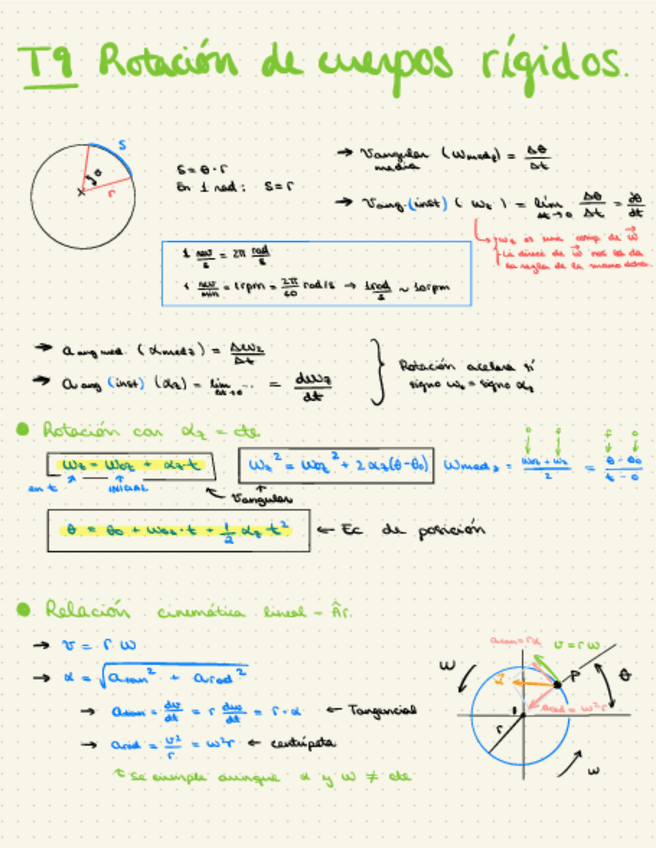 T9 Rotación de cuerpos rígidos.
s
θ
r
s = θ · r
En 1 rad: s = r
→ Vangular media (ωmedz) = Δθ/Δt
→ Vang. (inst) (ωz) = lim Δt→0 Δθ/Δt = dθ/dt
ωz es una comp. de ω⃗
La direcc de ω⃗ nos la da
la regla de la mano dcha.
1 rev/s = 2π rad/s
1 rev/min = 1 rpm = 2π/60 rad/s → 1 rad/s ~ 10 rpm
→ a ang med. (αmedz) = Δωz/Δt
→ a ang (inst) (αz) = lim Δt→0 ... = dωz/dt
Rotación acelera si
signo ωz = signo αz
● Rotación con αz = cte
ωz = ω0z + αz·t
en t
INICIAL
ωz² = ω0z² + 2αz(θ-θ0)
Vangular
ωmedz = (ω0z + ωz)/2 = (θ - θ0)/(t - 0)
θ = θ0 + ω0z·t + 1/2 αz t² ← Ec de posición
● Relación cinemática lineal - Âr.
→ v = r ω
→ a = √(atan² + arad²)
→ atan = dv/dt = r dω/dt = r·α ← Tangencial
→ arad = v²/r = ω²r ← centrípeta
↑ Se cumple aunque α y ω ≠ cte
atan = rα
v = rω
P
θ
ω
arad = ω²r
r
ω